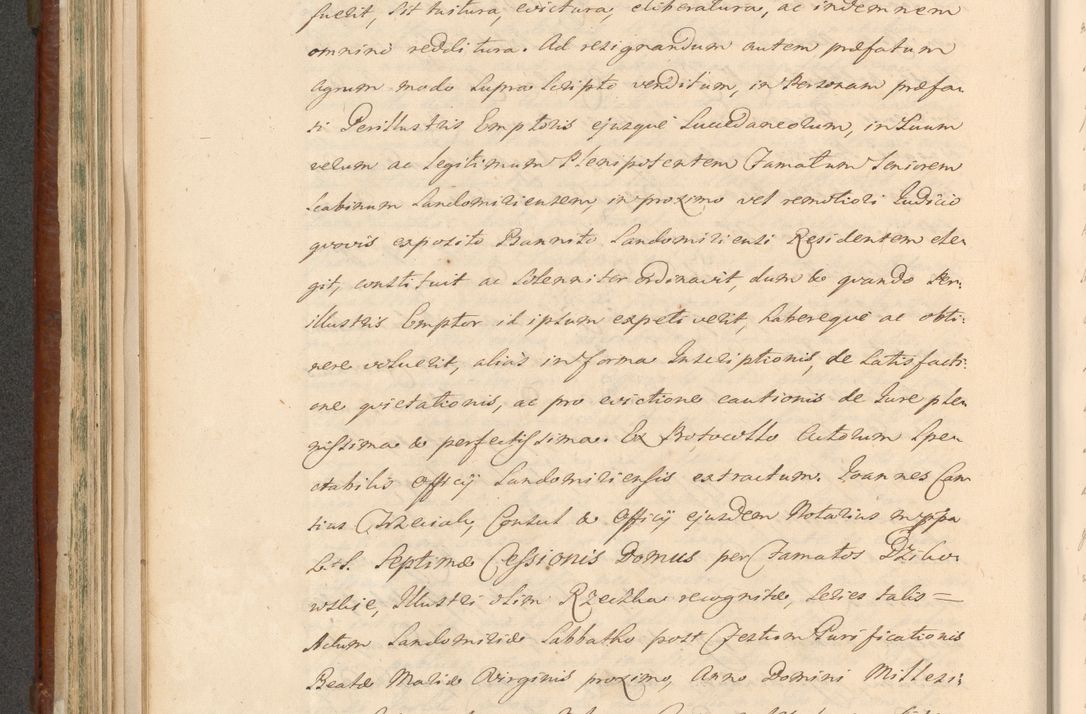 fuerit, sit tuitura, evictura, eliberatura, ac indemnem
omnino redditura. Ad resignandum autem præfatum
Agrum modo supra scripto venditum, in Personam præfa-
ti Perillustris Emptoris ejusque Succedaneorum, in Suum
verum ac legitimum Plenipotentem Famatum Seniorem
Scabinum Sandomiriensem, in proximo vel remotiori Judicio
quovis exposito Bannito Sandomiriensi Residentem ele-
git, constituit ac solenniter ordinavit, dum & quando Per-
illustris Emptor id ipsum expetiverit, habereque ac obti-
nere voluerit, alias in forma Inscriptionis, de Satisfacti-
one quietationis, ac pro evictione cautionis de Jure ple-
nissima & perfectissima. Ex Protocollo Actorum Spe-
ctabilis Officij Sandomiriensis extractum. Joannes Can-
tius Consul & Officij ejusdem Notarius mppa
L.S. Septimæ Cessionis Domus per Famatos Dzibo-
wskie, Illustri olim Rzeczka recognitæ, Series talis =
Actum Sandomiriæ Sabbatho post Festum Purificationis
Beatæ Mariæ Virginis proximo, Anno Domini Millesi-